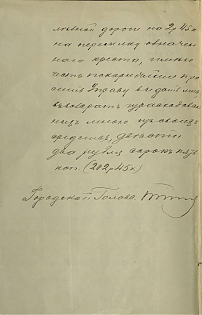 на 2 р 45 к
на пересылку означен-
ного креста,
покорнейше про-
сить Управу выдать мне
въ возвратъ израсходован-
ныхъ мною изъ своихъ
средствъ, двести
два рубля сорокъ пять
коп. (202 р 45 к)
Городской Голова